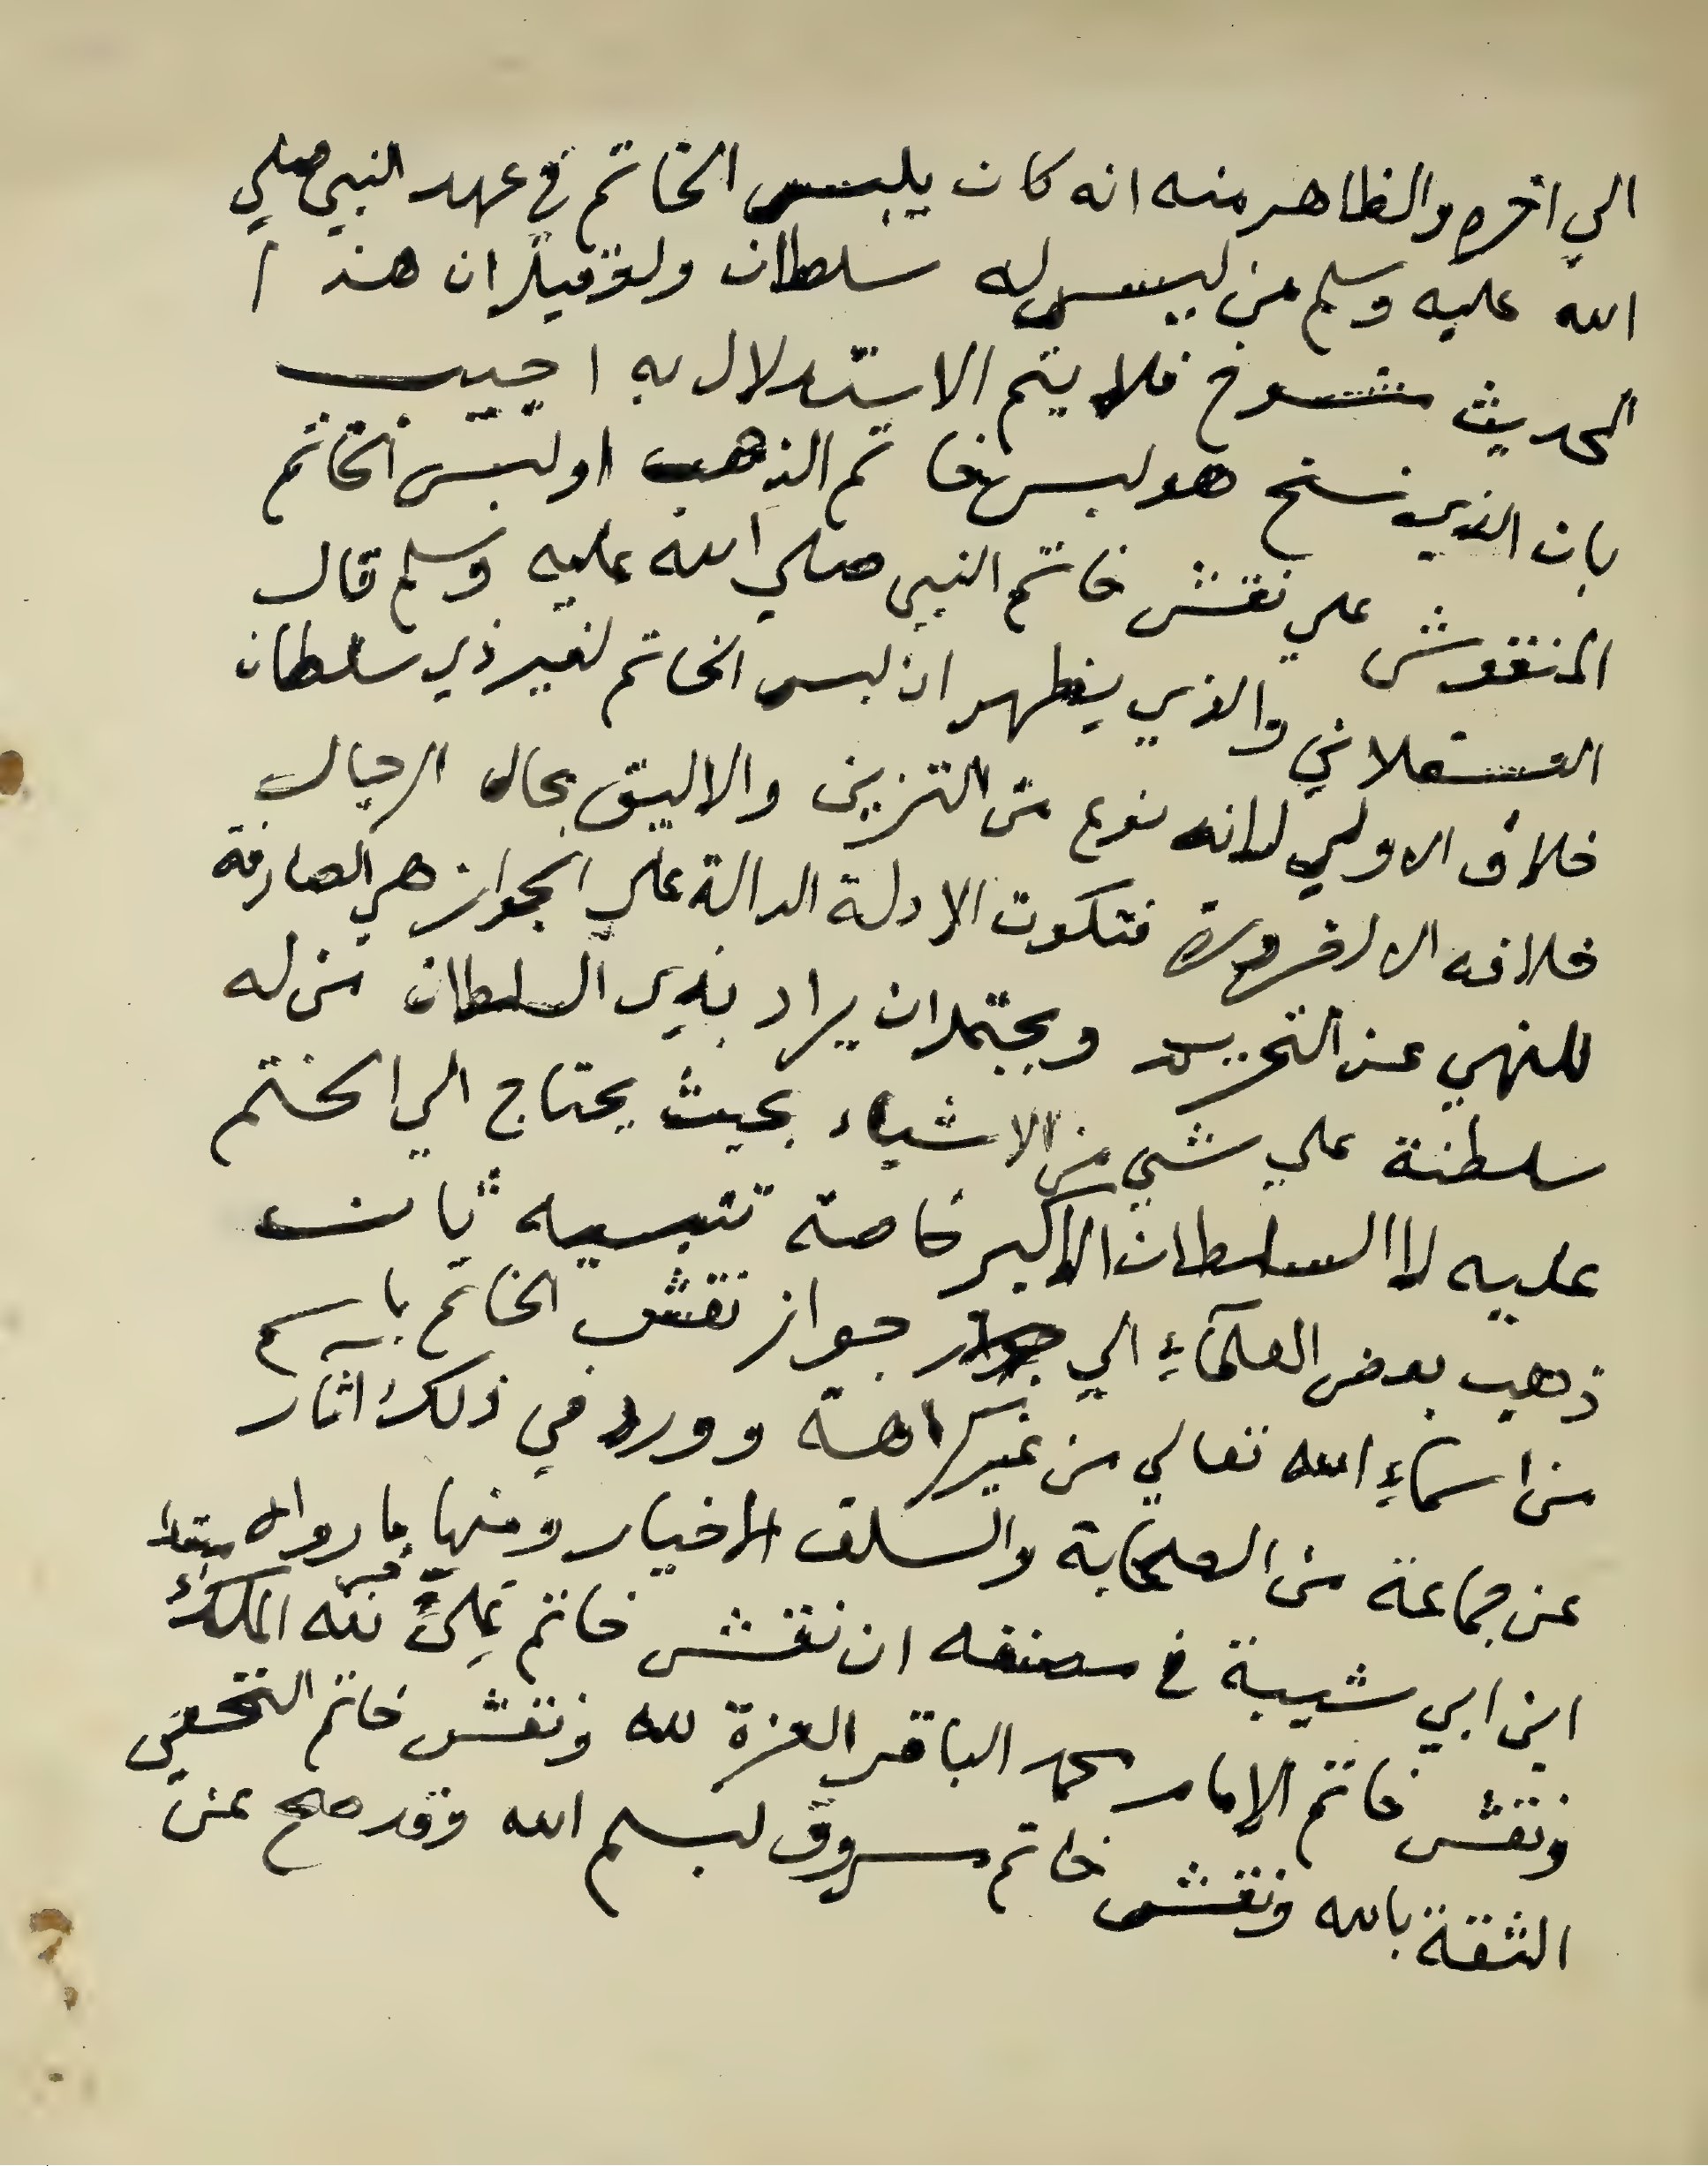 الي اخره والظاهر منه انه كان يلبس الخاتم في عهد النبي صلي
الله عليه وسلم من ليس له سلطان ولو قيل ان هذا
الحديث منسوخ فلا يتم الاستدلال به اجيب
بان الذي نسخ هو لبس خاتم الذهب او لبس الخاتم
المنقوش علي نقش خاتم النبي صلي الله عليه وسلم قال
العسقلاني والذي يظهر ان لبس الخاتم لغير ذي سلطان
خلاف الاولي لانه نوع من التزين والاليق بحال الرجال
خلافه الا لضرورة فتكون الادلة الدالة علي الجواز هي الصارفة
للنهي عن التحريم ويحتمل ان يراد بذي السلطان من له
سلطنة علي شي من الاشياء بحيث يحتاج الي الختم
عليه لا السلطان الاكبر خاصة تنبيه ثان
ذهب بعض العلماء الي جواز نقش الخاتم باسم
من اسماء الله تعالي من غير كراهة وورد في ذلك اثار
عن جماعة من الصحابة والسلف الاخيار ومنها ما رواه
ابن ابي شيبة في مصنفه ان نقش خاتم علي لله الملك
ونقش خاتم الامام محمد الباقر العزة لله ونقش خاتم النخعي
الثقة بالله ونقش خاتم مسروق بسم الله وقد صح عن